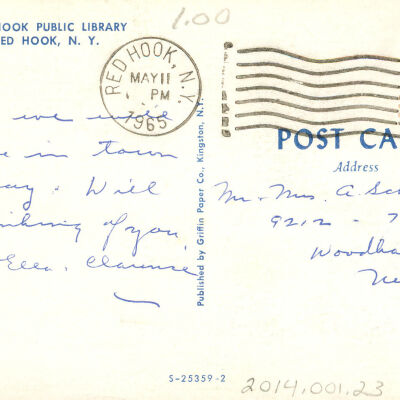 1.00
HOOK PUBLIC LIBRARY
ED HOOK, N. Y.
RED HOOK, N.Y.
MAY 11
PM
1965
we were
e in town
ay. Will
thinking of you.
Ella. Clarence
Published by Griffin Paper Co., Kingston, N.Y.
POST CA
Address
Mr. Mrs. A. Sc
9212 - 7
Woodha
Ne
S-25359-2
2014.001.23